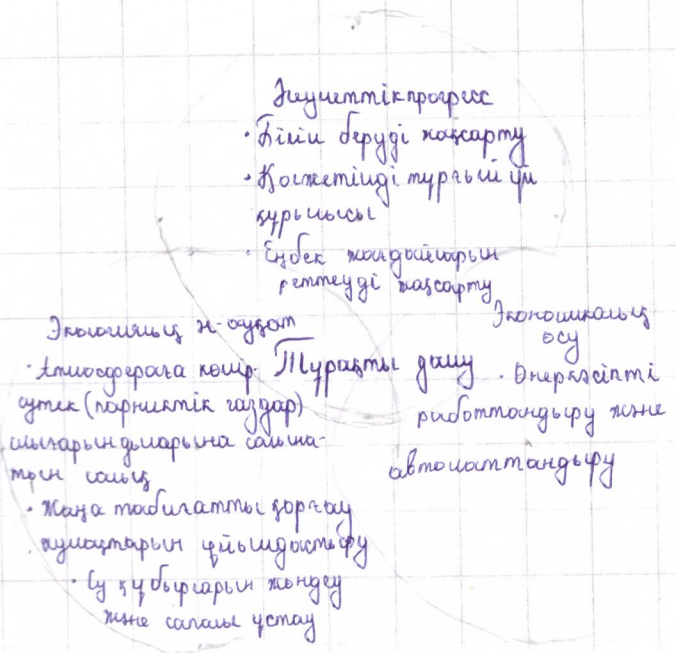 Әлеуметтік прогресс
• Білім беруді жақсарту
• Қолжетімді тұрғын үй
құрылысы
• Еңбек жағдайларын
реттеуді жақсарту
Экологиялық ж-ауқат
• Атмосфераға көмір-
сутек (парниктік газдар)
шығарындыларына салына-
тын салық
• Жаңа табиғатты қорғау
аумақтарын ұйымдастыру
• Су құбырларын жөндеу
және сапалы ұстау
Тұрақты даму
Экономикалық
өсу
• Өнеркәсіпті
роботтандыру және
автоматтандыру